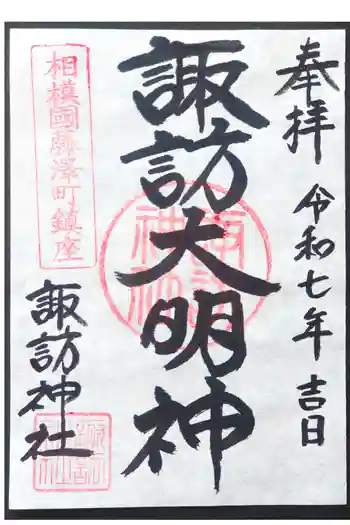 奉拝 令和七年 吉日
諏訪大明神
相模國藤澤町鎮座
諏訪神社
諏訪神社